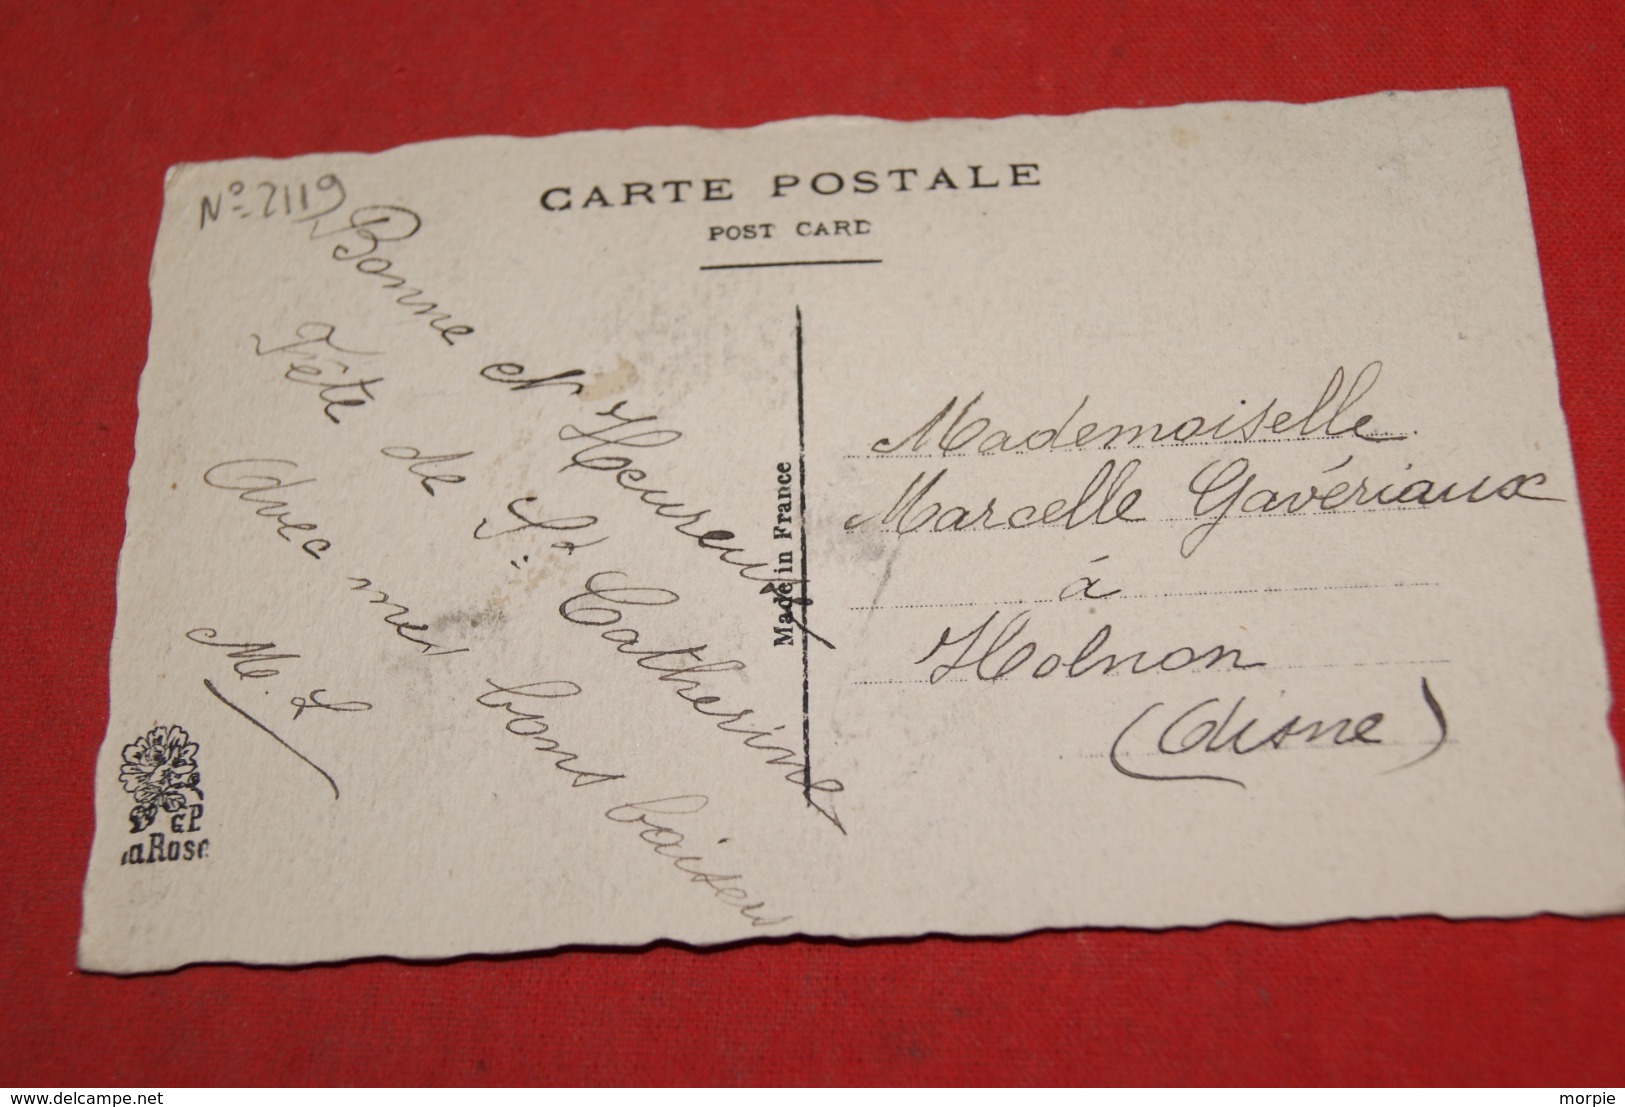 N° 2119
CARTE POSTALE
POST CARD
Bonne et Heureuse
Fête de Ste Catherine
Avec mes bons baisers
M. L
Made in France
Mademoiselle
Marcelle Gavériaux
à
Holnon
(Aisne)
GP
la Rose
www.delcampe.net
morpie